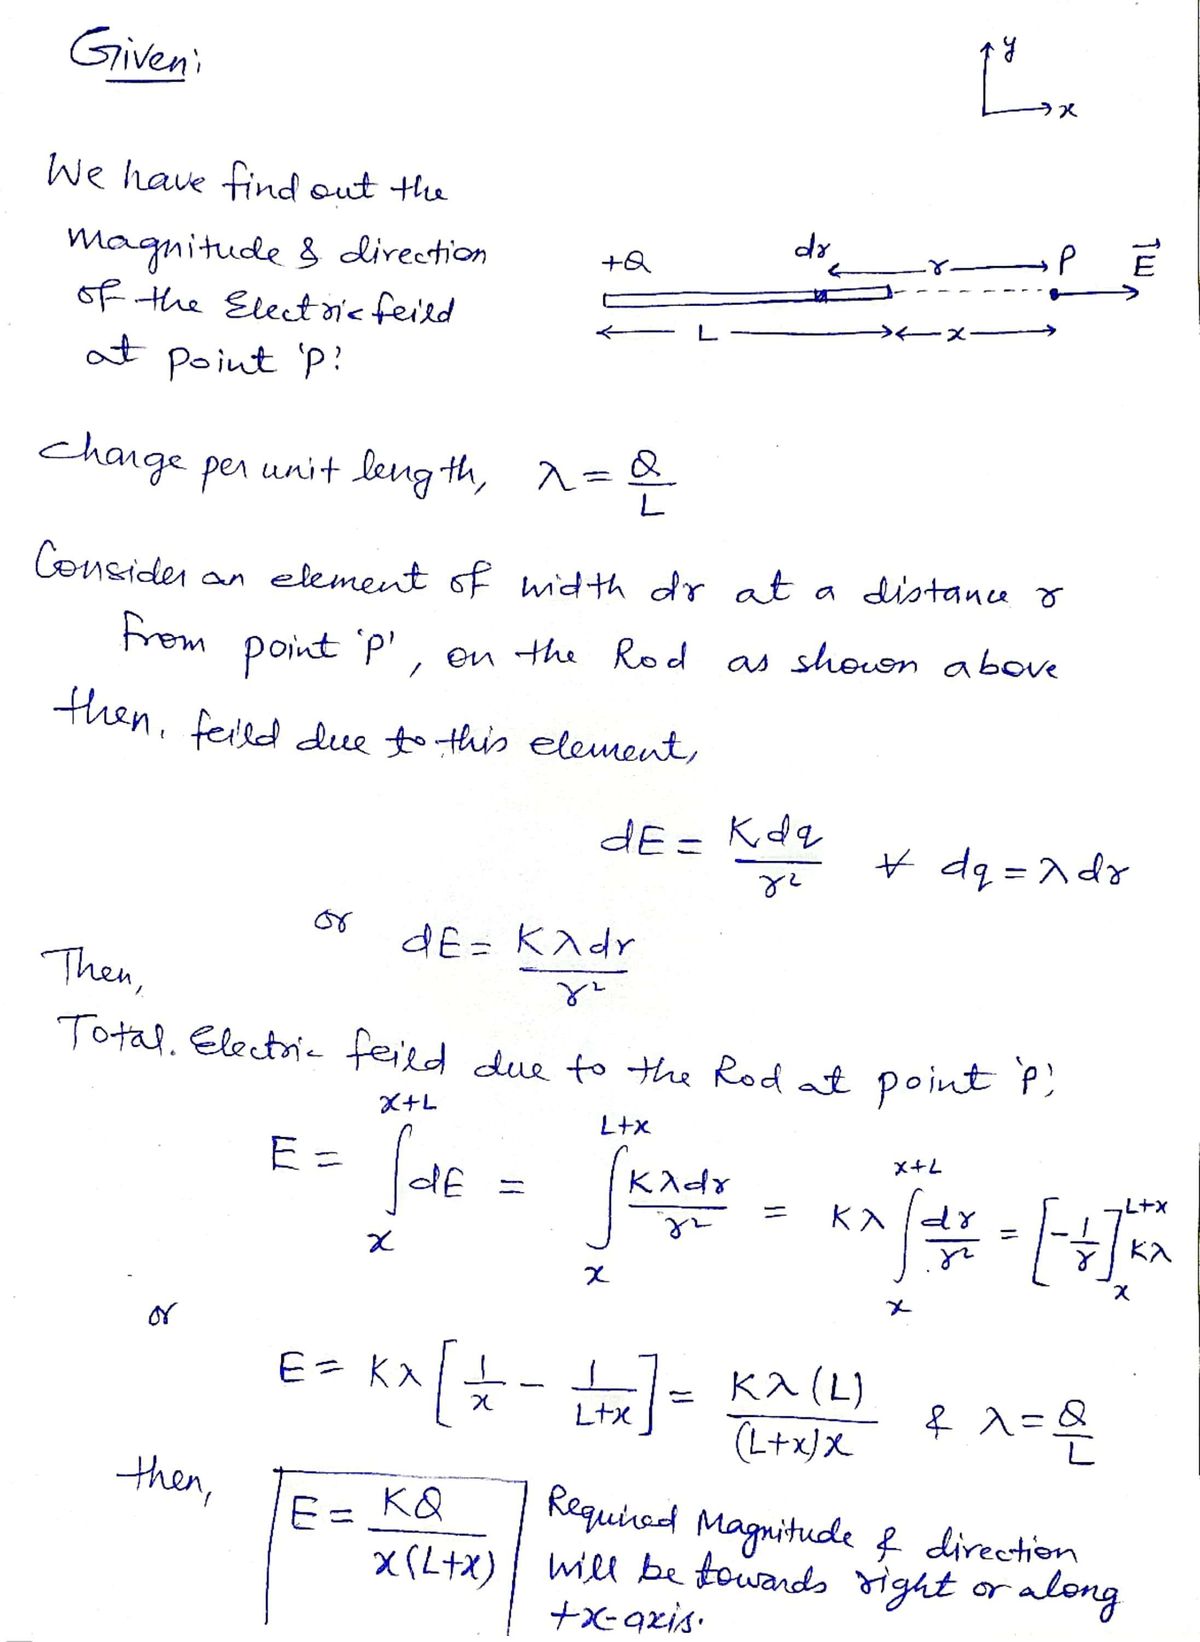 Given:
y
x
We have find out the
magnitude & direction
of the Electric feild
at point 'P'.
+Q dr r P E⃗
L x
Charge per unit length, λ = Q/L
Consider an element of width dr at a distance r
from point 'P', on the Rod as shown above
then, feild due to this element,
dE = Kdq/r² & dq = λdr
or dE = Kλdr/r²
Then,
Total. Electric feild due to the Rod at point 'P',
E = ∫ₓ^(x+L) dE = ∫ₓ^(L+x) Kλdr/r² = Kλ ∫ₓ^(x+L) dr/r² = [-1/r]ₓ^(L+x) Kλ
or
E = Kλ [1/x - 1/(L+x)] = Kλ(L)/((L+x)x) & λ = Q/L
then,
E = KQ/(x(L+x))
Required Magnitude & direction
will be towards right or along
+x-axis.